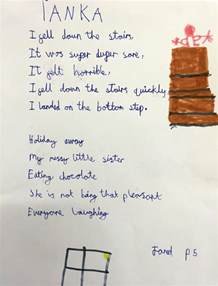 TANKA
I fell down the stairs,
It was super duper sore,
It felt horrible,
I fell down the stairs quickly
I landed on the bottom step.
Holiday away
My messy little sister
Eating chocolate
She is not being that pleasant
Everyone laughing
P.5